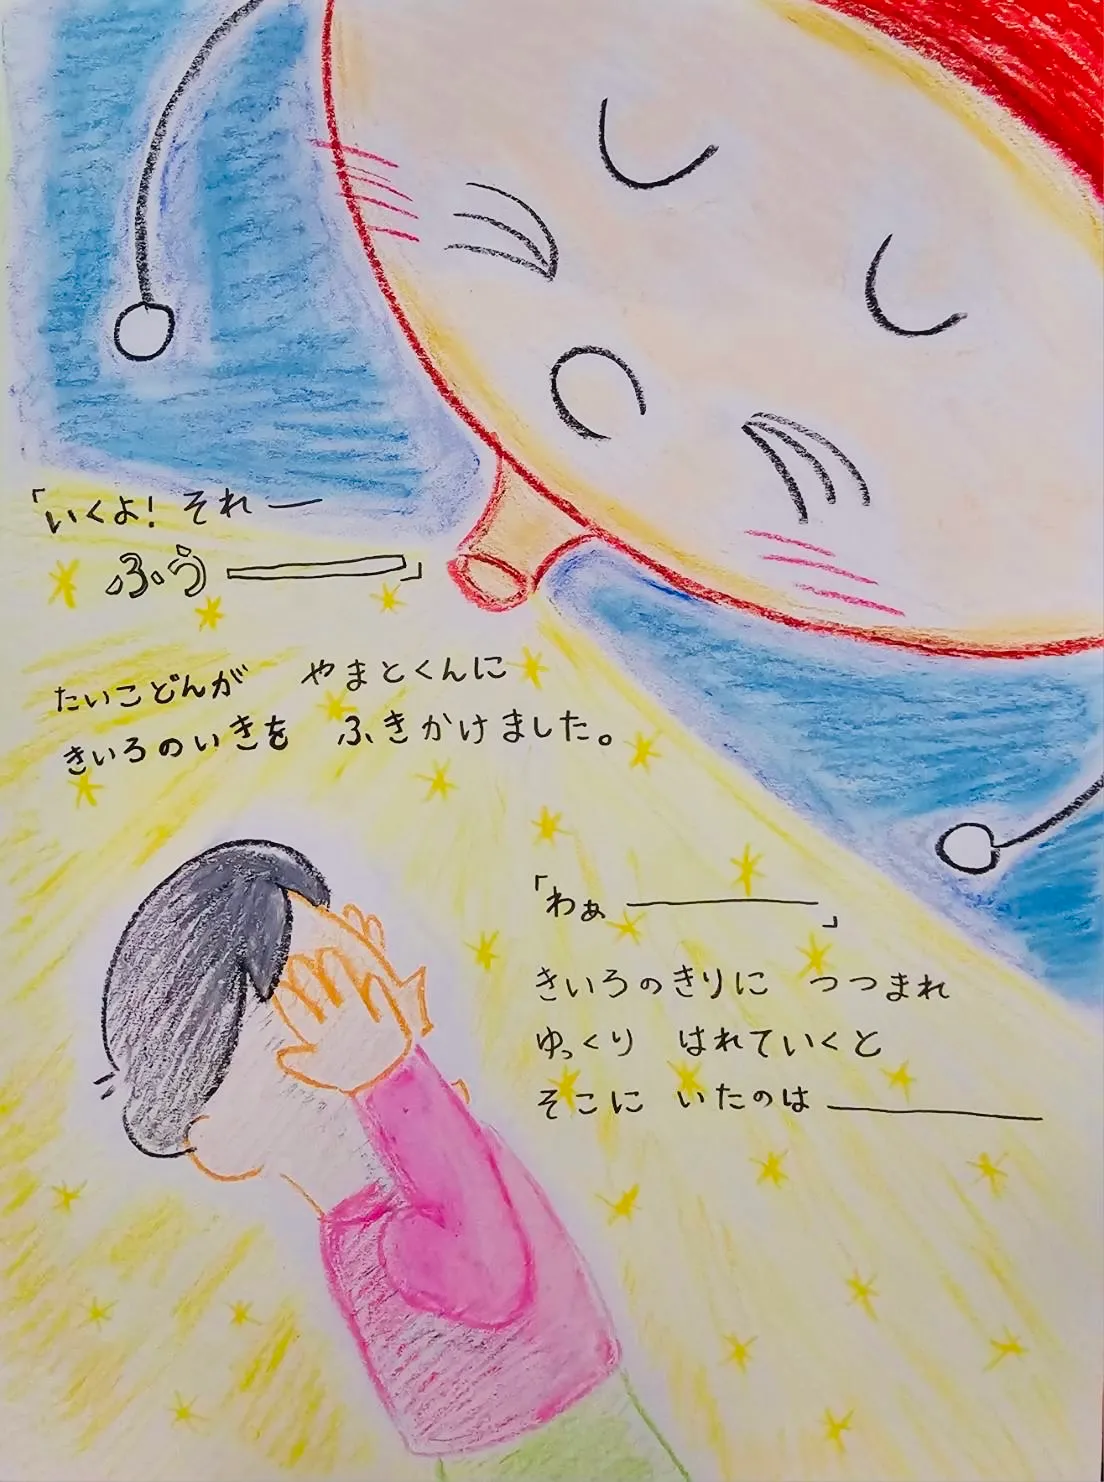 「いくよ！それー
ふぅーーー」
たいこどんが　やまとくんに
きいろのいきを　ふきかけました。
「わぁーーー」
きいろのきりに　つつまれ
ゆっくり　はれていくと
そこに　いたのは———